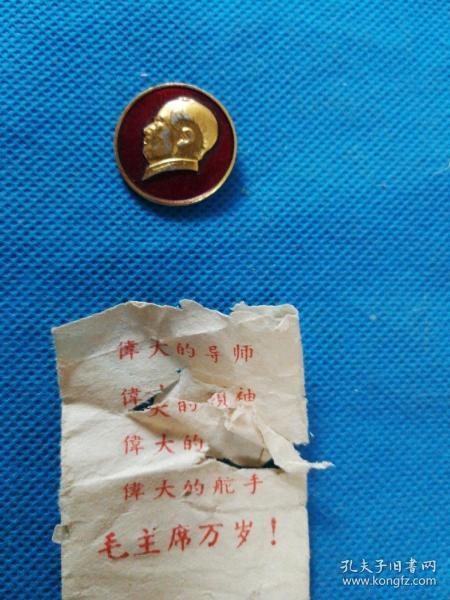 偉大的导师
偉大的領袖
偉大的
偉大的舵手
毛主席万岁！
孔夫子旧书网
www.kongfz.com